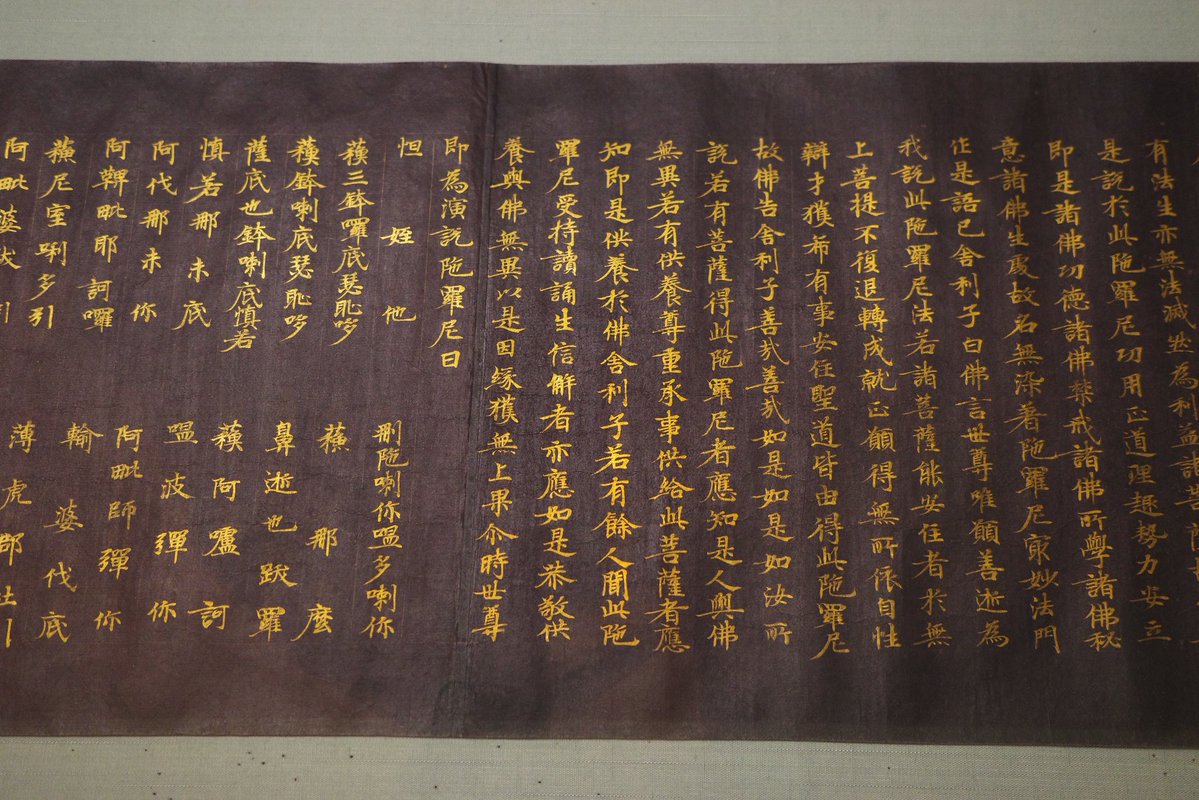 有法生亦無法滅然為利益諸菩薩
是說於此陁羅尼功用正道理趣勢力安立
即是諸佛功德諸佛禁戒諸佛所學諸佛秘
意諸佛生處故名無染著陁羅尼㝡妙法門
作是語已舍利子白佛言世尊唯願善逝為
我說此陁羅尼法若諸菩薩能安住者於無
上菩提不復退轉成就正願得無所依自性
辯才獲希有事安住聖道皆由得此陁羅尼
故佛告舍利子善哉善哉如是如是如汝所
說若有菩薩得此陁羅尼者應知是人與佛
無異若有供養尊重承事供給此菩薩者應
知即是供養於佛舍利子若有餘人聞此陁
羅尼受持讀誦生信解者亦應如是恭敬供
養與佛無異以是因緣獲無上果尒時世尊
即為演說陁羅尼曰
怛姪他 刪陁喇你嗢多喇你
蘓三鉢囉底瑟恥哆 蘓那麼
蘓鉢喇底瑟恥哆 鼻逝也跋羅
薩底也鉢喇底慎若 蘓阿嚧訶
慎若那末底 嗢波彈你
阿代那末你 阿毗師彈你
阿鞞毗耶訶囉 輸婆伐底
蘓尼室唎多引 薄虎郡社引
阿毗婆